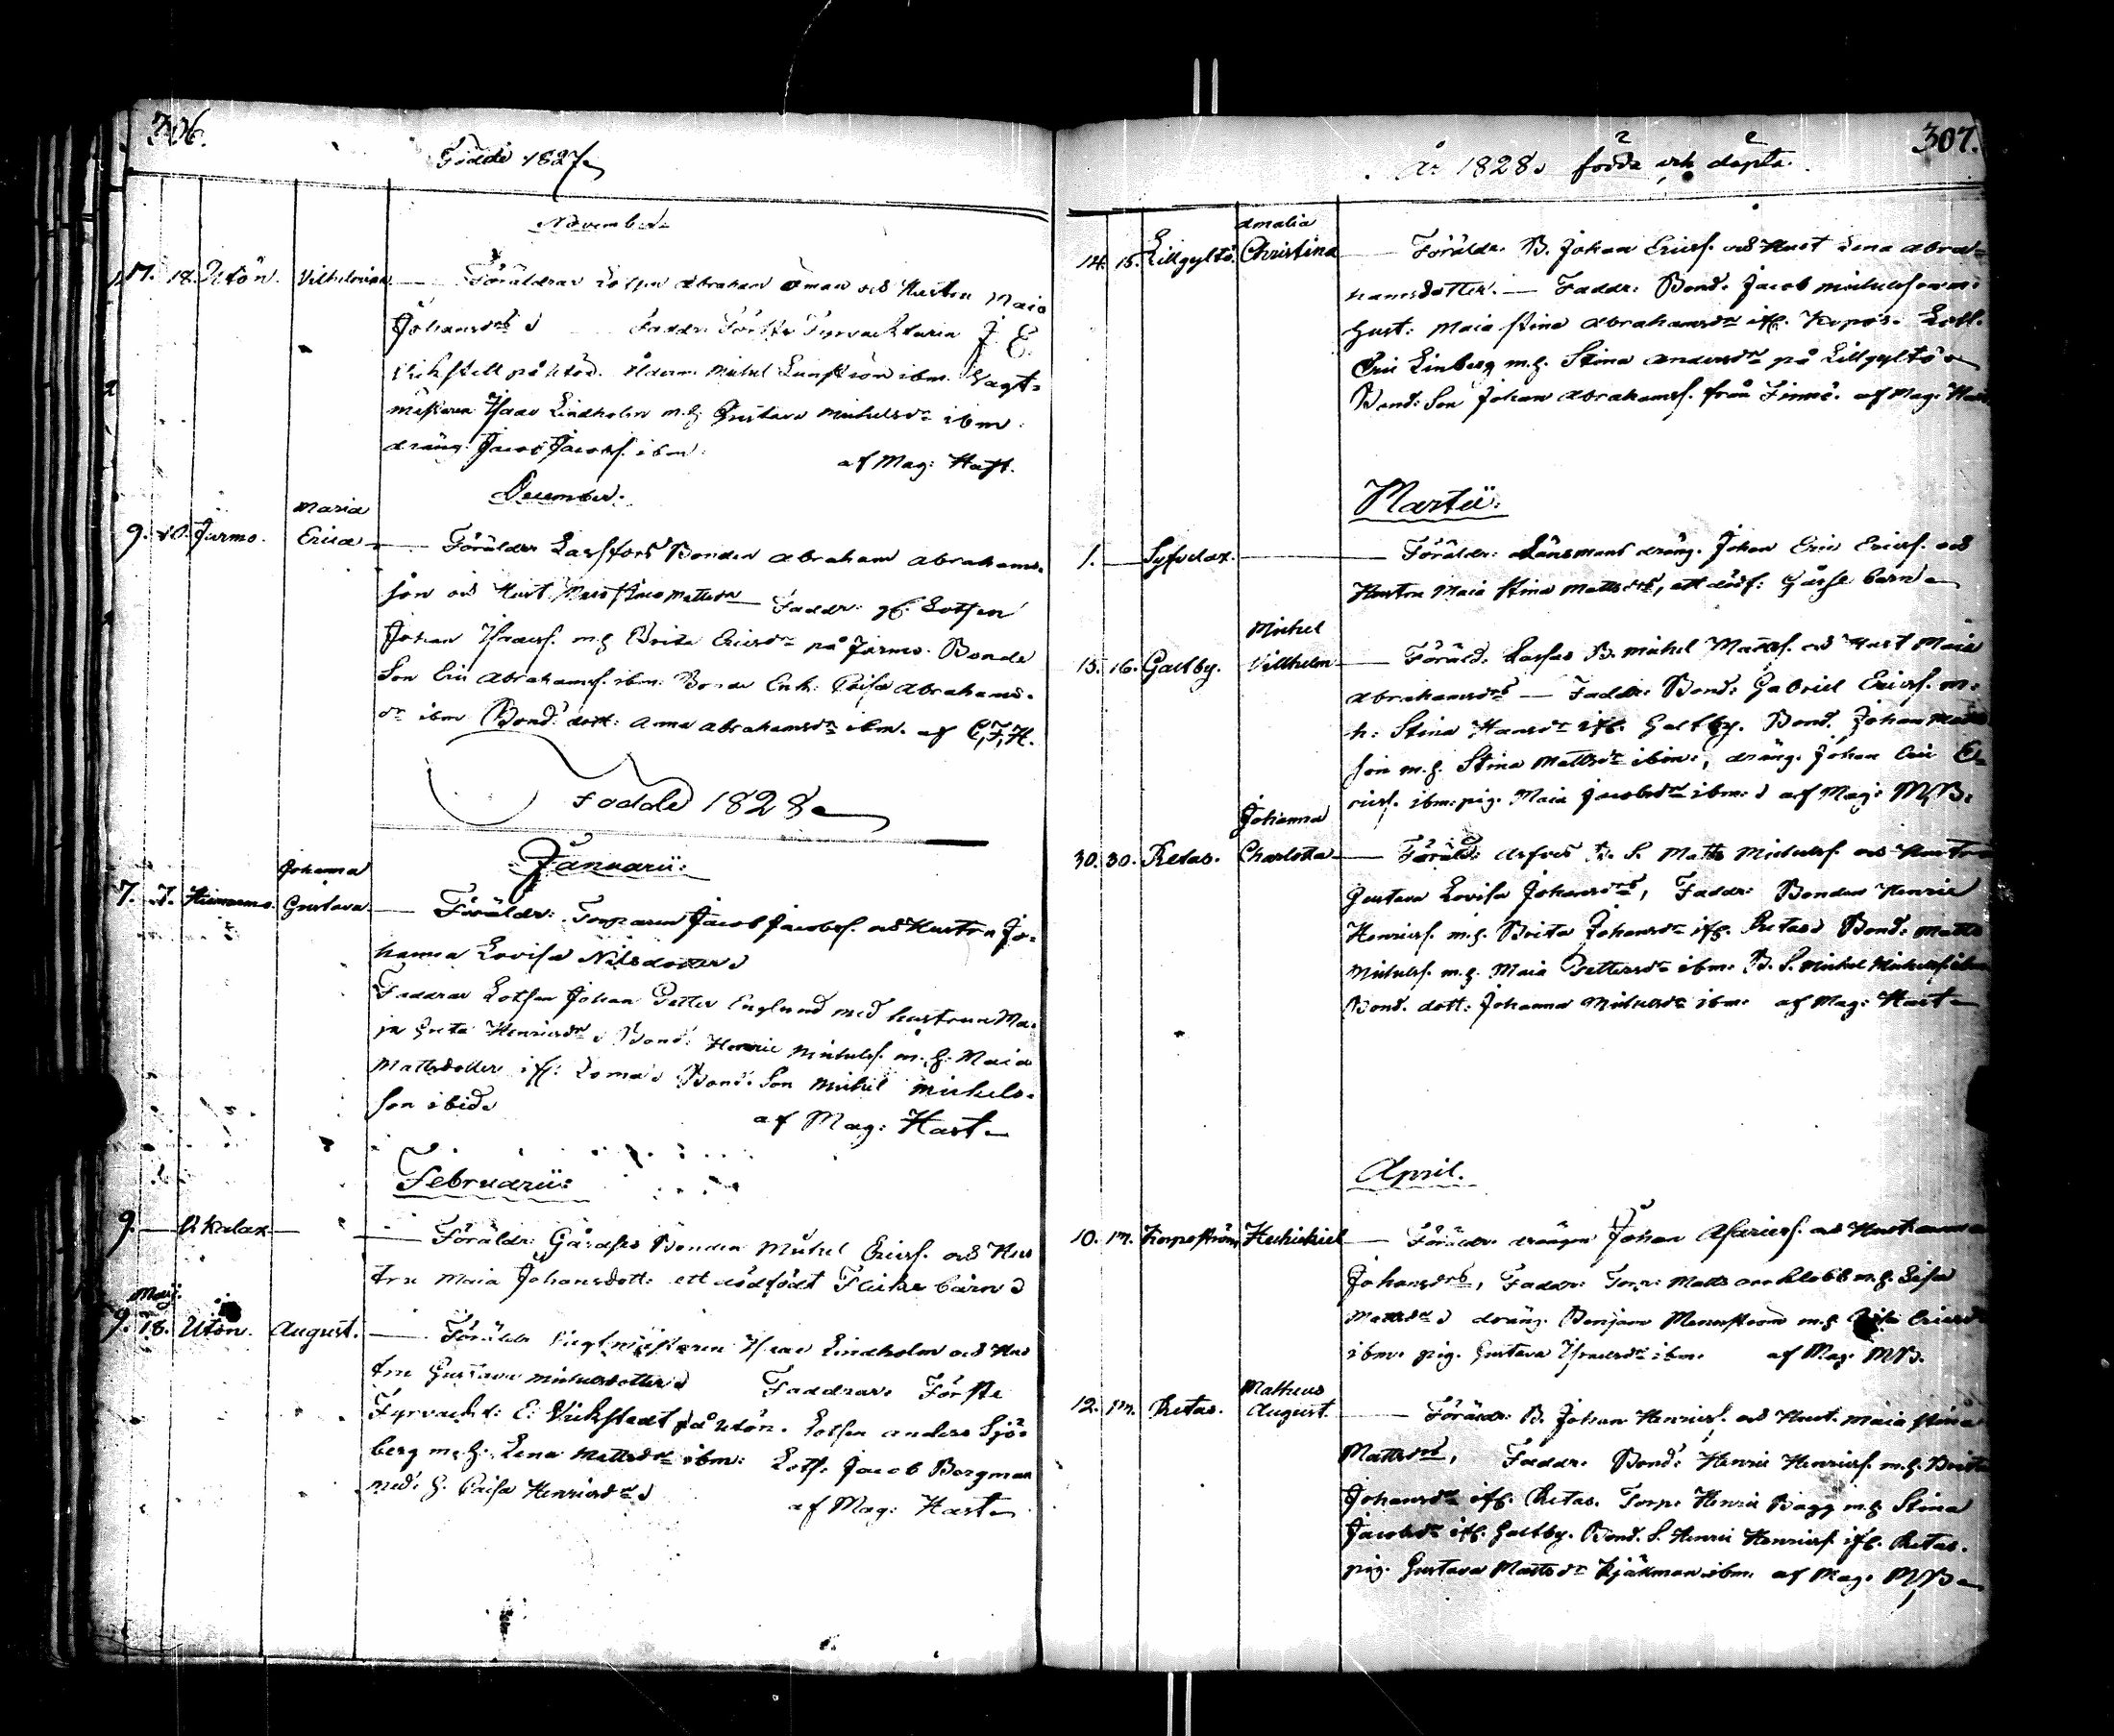 306.
Födde 1827
November
17. 18. Utön. Vilhelmina — Föräldrar Lotsen Abraham Öman och Hustru Maia
Johansdr Faddr: Förste Fyrvacktaren J. E.
Vikstedt på Utön. Ålderm: Michel Lunström ibm. Vagt-
mästaren Isaac Lindholm m.h. Gustava Michelsdr ibm
dräng Jacob Jacobss. ibm. af Mag: Hast.
December.
Maria
9. 10. Jurmo. Erica — Föräldr: Bonden Abraham Abrahams-
son och Hust. Maia Stina Mattsdr Faddr: Lotsen
Johan Isacss. m.h. Brita Ericsdr på Jurmo. Bonde
Son Eric Abrahamss. ibm: Bonde Enk: Caisa Abrahams-
dr ibm Bond: dott: Anna Abrahamsdr ibm. af C,F,H.
Födde 1828
Januarii:
Johanna
7. 7. Gustava — Föräldr: Torparen Jacob Jacobss. och Hustru Jo-
hanna Lovisa Nilsdotter
Faddrar Lotsen Johan Petter Englund med hustrun Ma-
ja Greta Henricsdr Bond: Henric Michelss. m.h: Maia
Mattsdotter if: Lomax Bond: Son Michel Michels-
son ibid. af Mag: Hast
Februarii:
9. — Ukalax — Föräldr: Gårdfar Bonden Michel Ericss. och Hus
tru Maia Johansdott: ett dödfödt Flicke barn
Maij.
9. 18. Utön. August. — Föräldr: Vagtmästaren Isaac Lindholm och Hus
tru Gustava Michelsdotter Faddrar: Förste
Fyrvackt: E: Vickstedt på Utön. Lotsen Anders Sjö-
berg m.h. Lena Mattsdr ibm: Lots: Jacob Bergman
med: h. Caisa Henricsdr af Mag: Hast
307.
År 1828 födda och döpta.
Amalia
14. 15. Lillgyltö. Christina — Föräldr. B. Johan Ericss. och Hust Lena Abra-
hamsdotter. — Faddr: Bond: Jacob Michelsson m:
Hust: Maia Stina Abrahamsdr if. Korpos. Lots.
Eric Linberg m.h. Stina Andersdr på Lillgyltö
Bond: Son Johan Abrahamss. från Finnö. af Mag: Hast
Martii:
1. — Syfvelax. — Föräldr: Länsmans dräng. Johan Eric Ericss. och
Hustru Maia Stina Mattsdr, ett dödf: Gåsse barn
Michel
15. 16. Galtby. Villhelm — Föräld. B. Michel Matss. och Hust Maia
Abrahamsdr — Faddr: Bond: Gabriel Ericss. m:
h: Stina Hansdr if. Galtby. Bond. Johan Matts
son m.h. Stina Mattsdr ibm:, dräng. Johan Eric E-
ricss. ibm: pig. Maia Jacobsdr ibm: af Mag: M,B.
Johanna
30. 30. Retas. Charlotta — Föräld: B. S. Matts Michelss. och Hustru
Gustava Lovisa Johansdr, Faddr: Bonden Henric
Henricss. m.h. Brita Johansdr if. Retas Bond: Matts
Michelss. m.h. Maia Pettersdr ibm. B. S. Michel Michelss. ibm
Bond. dott: Johanna Michelsdr ibm. af Mag: Hast
April.
10. 17. Korpoström Hechiskiel — Föräldr. drängen Johan Asariss. och Hust Anna
Johansdr, Faddr: Torp: Matts Klobb m.h. Lisa
Mattsdr dräng. Benjam Mannström m.h. Ericsdr
ibm. pig. Gustava Israelsdr ibm. af Mag. M.B.
Matheus
12. 17. Retas. August. — Föräldr: B. Johan Henricss. och Hust. Maia Stina
Mattsdr, Faddr. Bond: Henric Henricss. m.h. Brita
Johansdr if. Retas. Torp: Henric Bagg m.h Stina
Jacobsdr if. Galtby. Bond. S. Henric Henricss if. Retas.
pig. Gustava Mattsdr Kjäkman ibm. af Mag. M,B